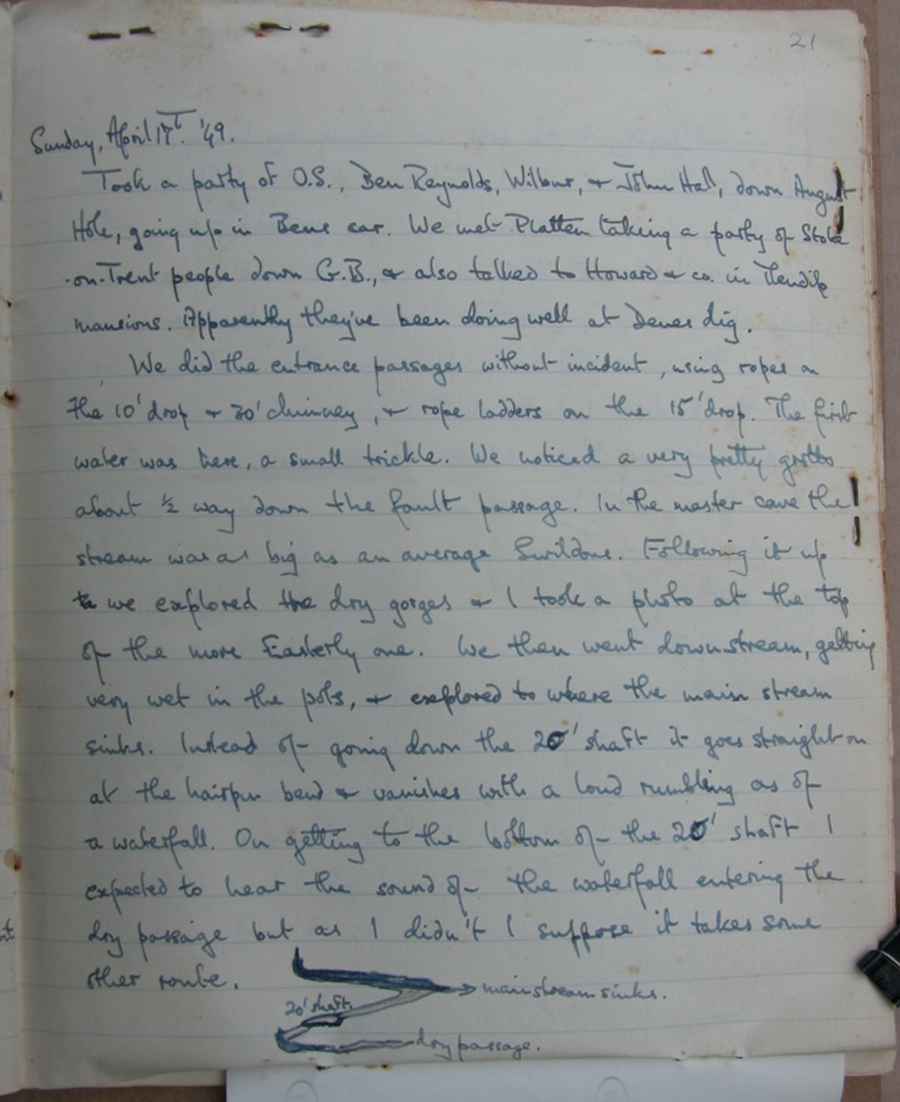 21
Sunday, April 17th. '49.
Took a party of O.S., Ben Reynolds, Wilbur, & John Hall, down August
Hole, going up in Bens car. We met Platten taking a party of Stoke
-on-Trent people down G.B., & also talked to Howard & co. in Mendip
mansions. Apparently they've been doing well at dig.
We did the entrance passages without incident, using ropes on
the 10' drop & 30' chimney, & rope ladders on the 15' drop. The first
water was here, a small trickle. We noticed a very pretty grotto
about ½ way down the fault passage. In the master cave the
stream was as big as an average Swildons. Following it up
we explored the dry gorges & I took a photo at the top
of the more Easterly one. We then went downstream, getting
very wet in the pots, & explored to where the main stream
sinks. Instead of going down the 20' shaft it goes straight on
at the hairpin bend & vanishes with a loud rumbling as of
a waterfall. On getting to the bottom of the 20' shaft I
expected to hear the sound of the waterfall entering the
dry passage but as I didn't I suppose it takes some
other route.
main stream sinks.
20' shaft.
dry passage.